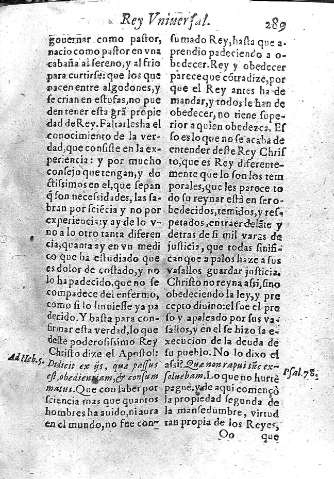 Rey Vniuersal.
289
gouernar como pastor,
nacio como pastor en vna
cabaña al sereno, y al frio
para curtirse: que los que
nacen entre algodones, y
se crian en estufas, no pue
den tener esta grã propie
dad de Rey. Faltales ha el
conocimiento de la ver-
dad, que consiste en la ex-
periencia: y por mucho
consejo que tengan, y do
ctissimos en el, que sepan
q̃ son necessidades, las sa-
bran por sciẽcia y no por
experiencia: y ay de lo v-
no a lo otro tanta diferen
cia, quanta ay en vn medi
co que ha estudiado que
es dolor de costado, y no
lo ha padecido, que no se
compadece del enfermo,
como si lo huuiesse ya pa
decido. Y basta para con-
firmar esta verdad, lo que
deste poderosissimo Rey
Christo dize el Apostol:
Ad Heb. 5.
Didicit ex ijs, quæ passus
est, obedientiam, & consum
matus. Que con saber por
sciencia mas que quantos
hombres ha auido, ni aura
en el mundo, no fue con-
sumado Rey, hasta que a-
prendio padeciendo a o-
bedecer. Rey y obedecer
parece que cõtradize, por
que el Rey antes ha de
mandar, y todos le han de
obedecer, no tiene supe-
rior a quien obedezca. Es
so es lo que no se acaba de
entender deste Rey Chris
to, que es Rey diferente-
mente que lo son los tem
porales, que les parece to
do su reynar está en ser o-
bedecidos, temidos, y res-
petados, entrar delãte y
detras de si mil varas de
justicia, que todas sinifi-
can que a palos haze a sus
vasallos guardar justicia.
Christo no reyna assi, sino
obedeciendo la ley, y pre
cepto diuino: el fue el pre
so y apaleado por sus va-
sallos, y en el se hizo la e-
xecucion de la deuda de
su pueblo. No lo dixo el
assi? Quæ non rapui tũc ex-
Psal. 78.
soluebam. Lo que no hurtè
paguè, y de aqui començò
la propiedad segunda de
la mansedumbre, virtud
tan propia de los Reyes,
Oo que